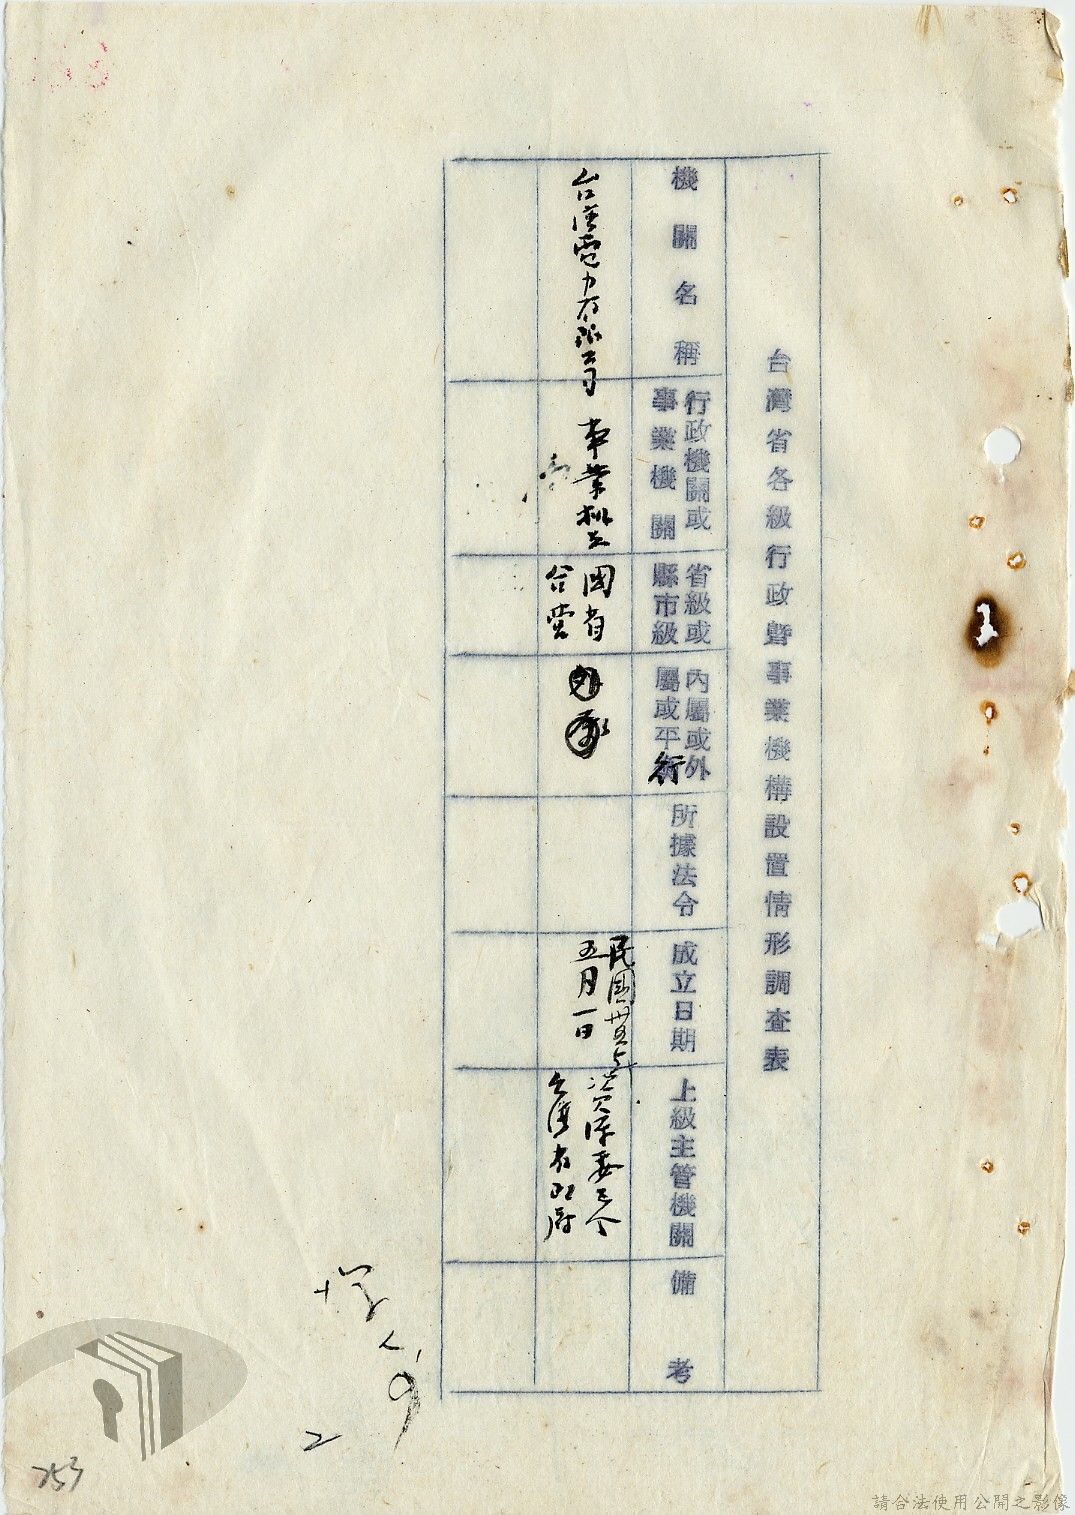 台灣省各級行政暨事業機構設置情形調查表
機關名稱
行政機關或
事業機關
省級或
縣市級
內屬或外
屬或平行
所據法令
成立日期
上級主管機關
備考
台灣電力有限公司
事業機关
國省
合營
民國卅五年
五月一日
資源委員會
台灣省政府
253
請合法使用公開之影像